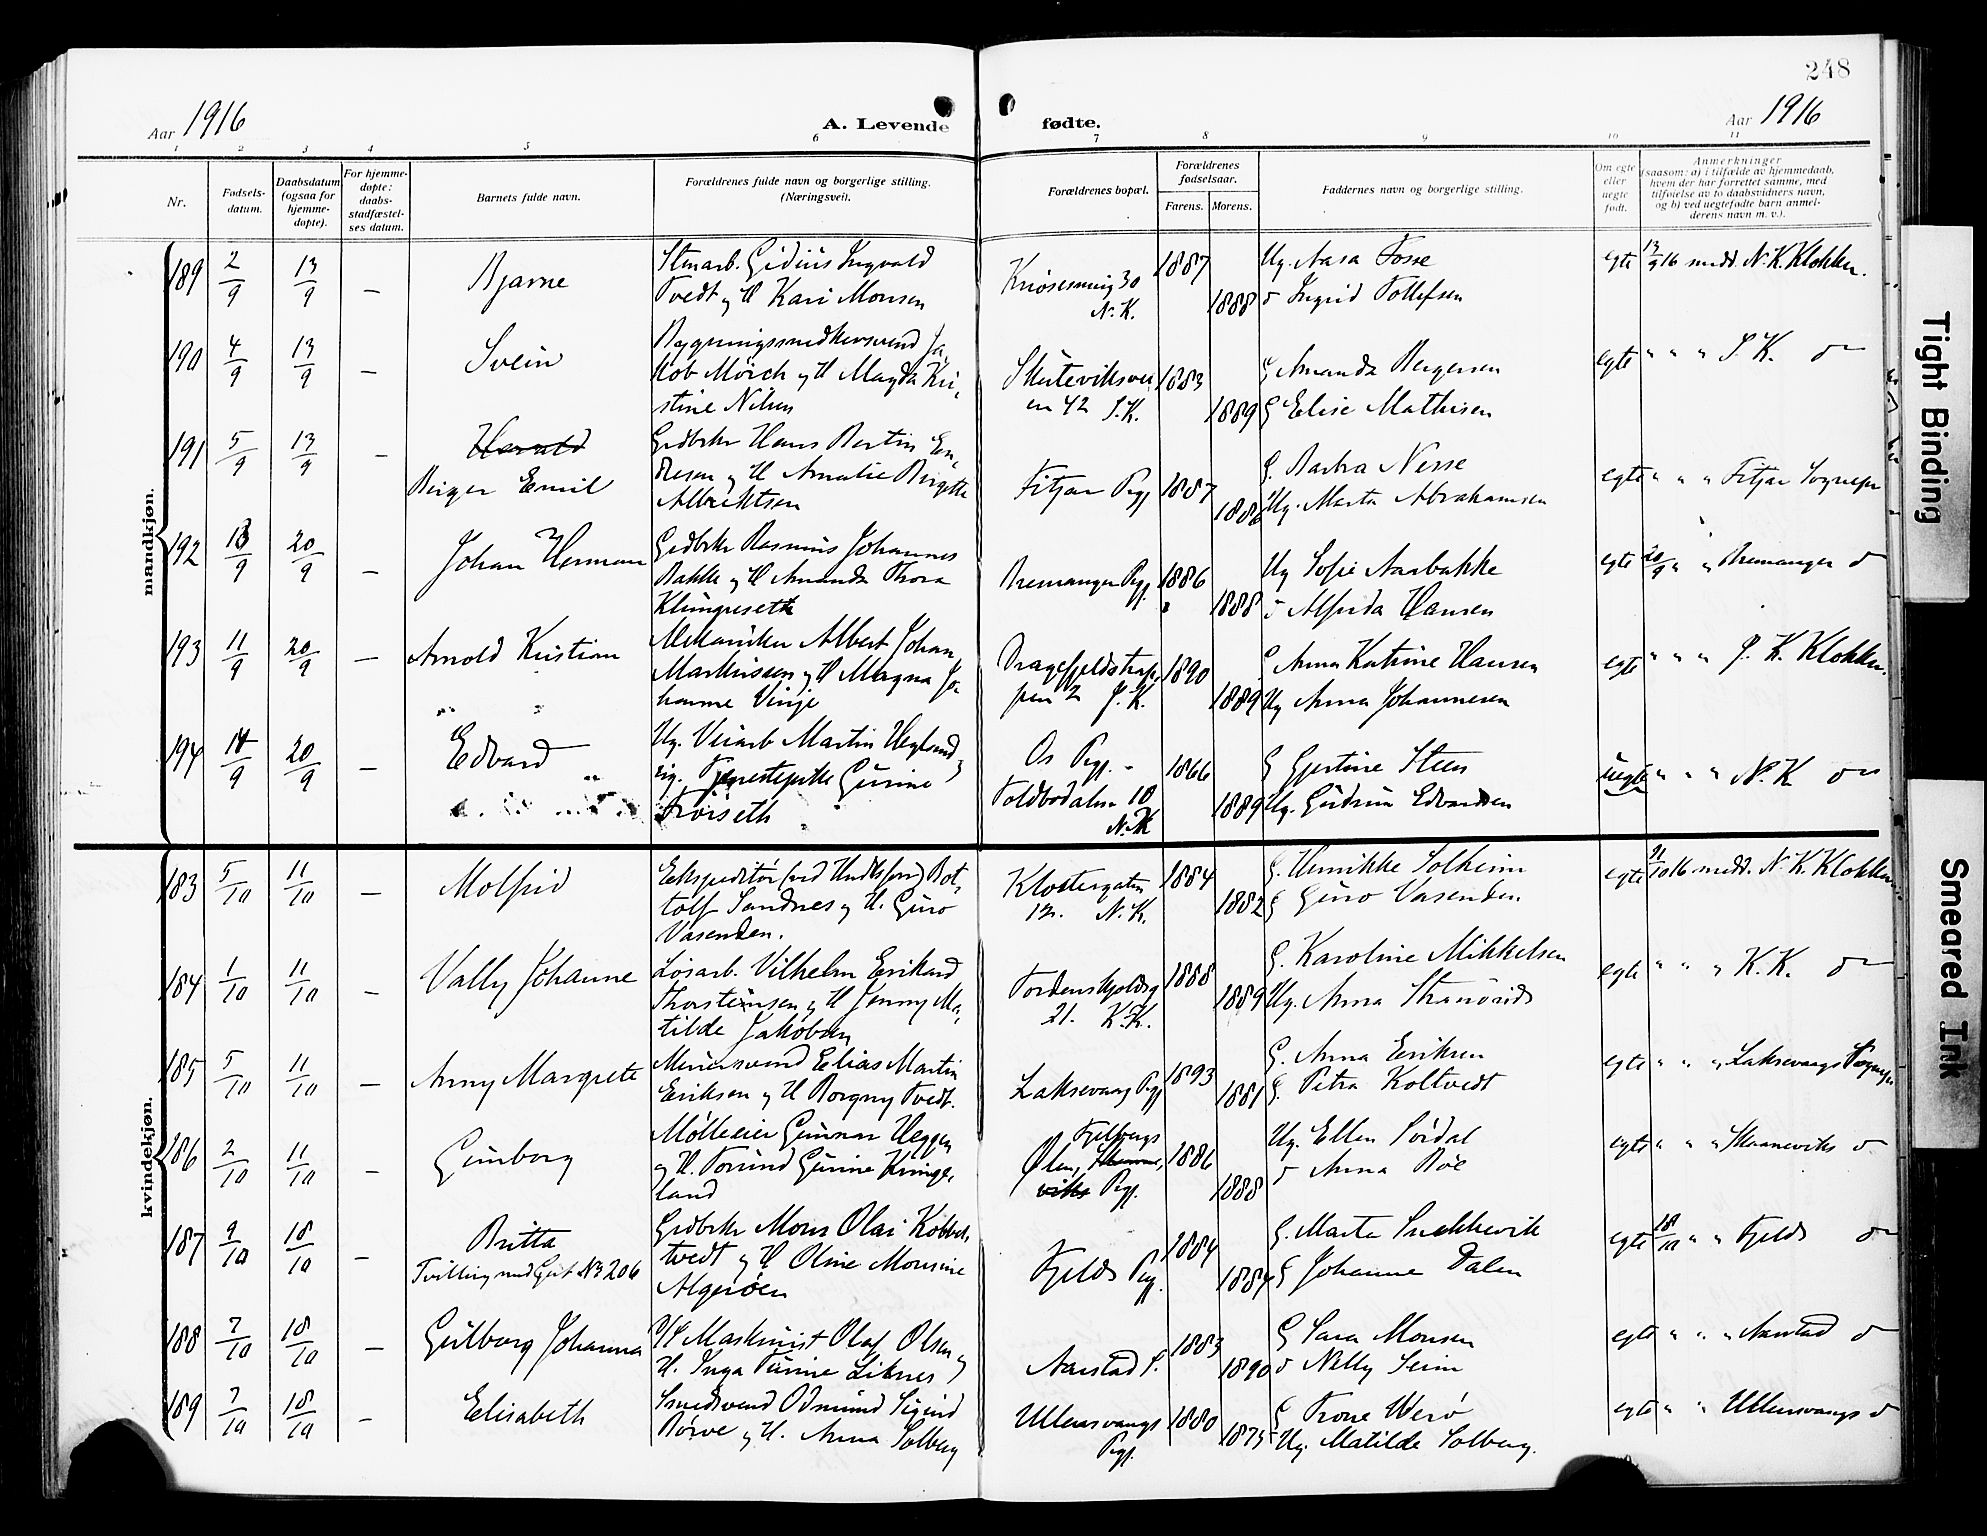 248
Aar 1916
A. Levende fødte.
Aar 1916
1 2 3 4 5 6 7 8 9 10 11
Nr.
Fødsels-
datum.
Daabsdatum
(ogsaa for
hjemme-
døpte).
For hjemme-
døpte:
daabs-
stadfæstel-
ses datum.
Barnets fulde navn.
Forældrenes fulde navn og borgerlige stilling.
(Næringsvei).
Forældrenes bopæl.
Forældrenes
fødselsaar.
Farens. Morens.
Faddernes navn og borgerlige stilling.
Om egte
eller
uegte
født.
Anmerkninger
(saasom: a) i tilfælde av hjemmedaab,
hvem der har forrettet samme, med
tilføielse av to daabsvidners navn,
og b) ved uegtefødte barn anmel-
derens navn m. v.).
mandkjøn.
189 2/9 13/9 — Bjarne
Stenarb. Gidius Ingvald
Tvedt og H Kari Monsen
30
N. K.
1887 1888
Ug. Aasa Fosse
d Ingrid Tollefsen
egte 13/9 16 medd. N. K. Klokker.
190 4/9 13/9 — Svein
Bygningssnedkersvend Ja-
kob Mörch og H Magda Kri-
stine Nilsen
Skuteviksvei
en 42 S. K.
1883 1889
G Amanda Bergersen
G Elise Mathisen
egte " " " S. K. do
191 5/9 13/9 — Harald
Birger Emil
Grdbrkr Hans Bertin En-
dresen og H Amalie Birgitte
Albrektsen
Fitjar Pgj
1887 1886
G. Barbra Nesse
Ug. Marta Abrahamsen
egte " " " Fitjar Sognepr
192 13/9 20/9 — Johan Herman
Grdbrkr Rasmus Johannes
Bakke og H Amanda Thora
Klungreseth
Bremanger Pgj.
1886 1888
Ug Sofie Aarbakke
d Alfrida Hansen
egte 20/9 " " Bremanger d
193 11/9 20/9 — Arnold Kristian
Mekaniker Albert Johan
Markussen og H Magna Jo-
hanne Vinje
Dragefjeldstrap-
pen 2 J. K.
1890 1889
G Anna Katrine Hansen
Ug Anna Johannesen
egte " " " J. K. Klokker.
194 14/9 20/9 — Edvard
Ug. Veiarb Martin Hegland
og ug. Tjenestepike Gurine
Frøiseth
Os Pgj. -
Toldbodalm. 10
N. K
1866 1889
G Gjertine Steen
Ug. Gudrun Edvardsen
uegte " " " N. K do
kvindekjøn.
183 5/10 11/10 — Molfrid
Ekspeditør (ved Hudtsfori) Bot-
tolf Sandnes og H. Guro
Vasenden.
Klostergaten
12. N. K.
1884 1882
G. Henrikke Solheim
G Guro Vasenden
egte 11/10 16 medd. N. K. Klokker
184 1/10 11/10 — Vally Johanne
Løsarb. Vilhelm Erikard
Thorsteinsen og H Jenny Ma-
tilde Jakobsen
Tordenskjoldsg
21. K. K.
1888 1889
G. Karoline Mikkelsen
Ug. Anna
egte " " " K. K. do
185 5/10 11/10 — Anny Margrete
Murersvend Elias Martin
Eriksen og H Borgny Tvedt.
Laksevaag Pgj
1893 1881
G. Anna Eriksen
G. Petra Koltvedt
egte " " " Laksevaags Sognepr
186 2/10 11/10 — Gunborg
Mølleeier Gunnar Heggen
og H. Torund Gurine Kringe-
land
Fjelbergs
Ølen, Skaane-
viks Pgj.
1886 1888
Ug. Ellen Sørdal
d Anna Bøe
egte " " " Skaaneviks d
187 9/10 18/10 — Britta
Tvilling med Gut No 206
Grdbrkr Mons Olai Kobbel-
tvedt og H Oline Monsine
Algerøen
Fjelds Pgj.
1884 1884
G. Marta Snekkevik
G Johanne Dalen
egte 18/10 " " Fjelds do
188 7/10 18/10 — Gulborg Johanna
Maskinist Olaf Olsen og
H. Inga Turine Liknes
Aarstad S.
1883 1890
G Sara Monsen
d Nelly Seim
egte " " " Aarstad d
189 7/10 18/10 — Elisabeth
Smedsvend Odmund Sigurd
Børve og H. Anna Solberg
Ullensvangs
Pgj.
1880 1875
G Trone Werø
Ug. Matilde Solberg.
egte " " Ullensvangs d
Tight Binding
Smeared Ink